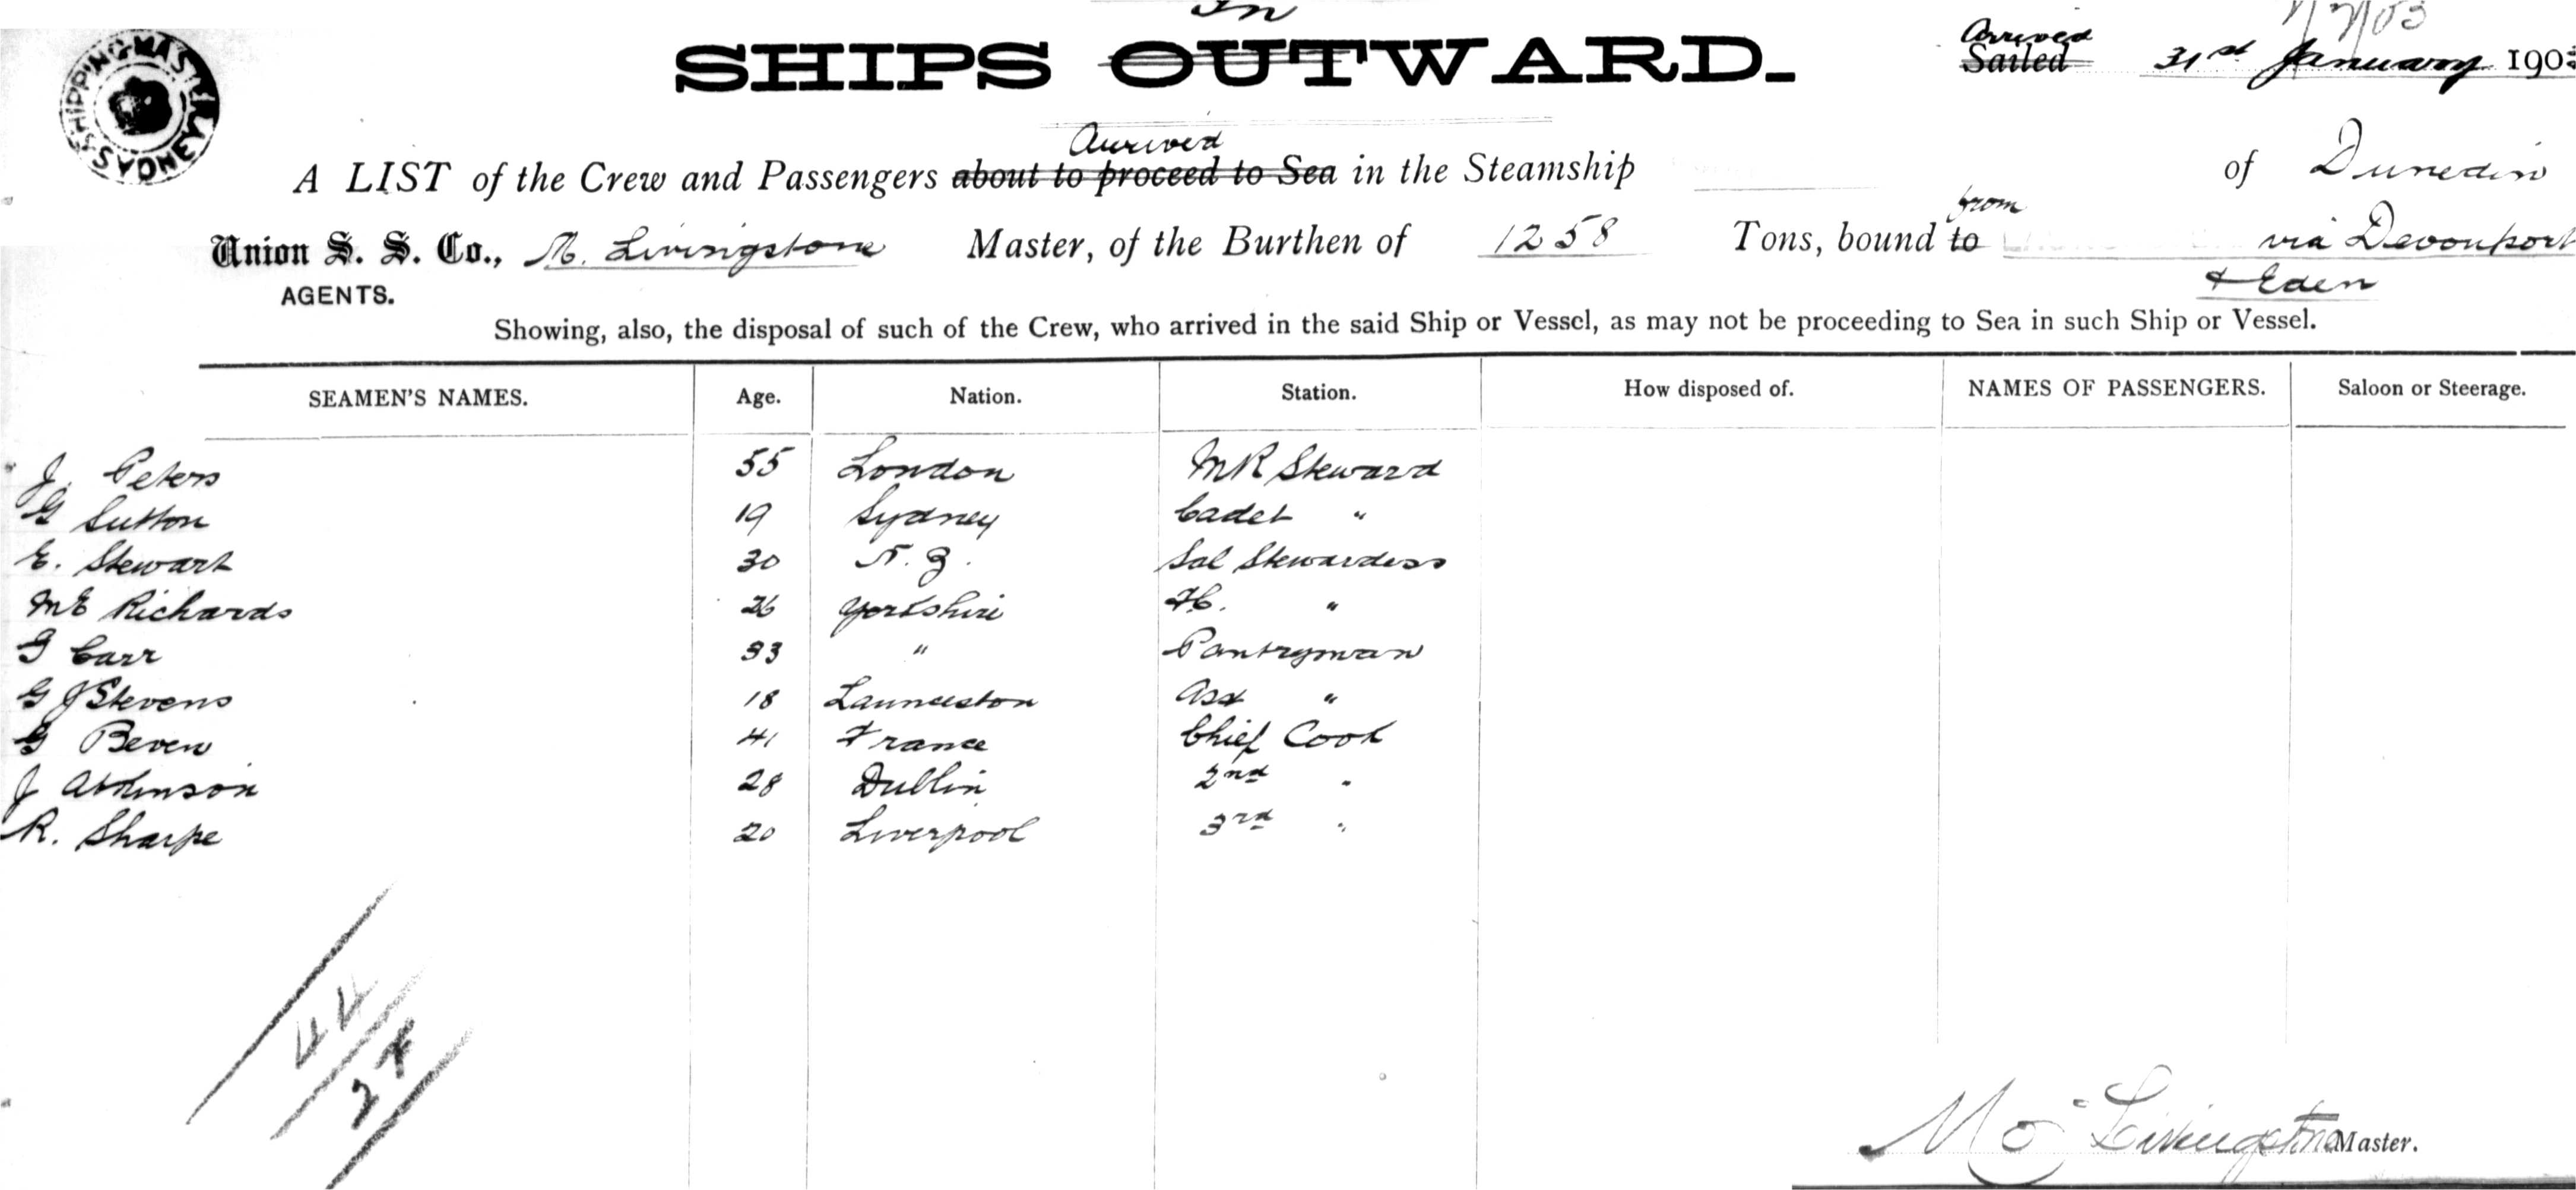 In
SHIPS OUTWARD.
Arrived
Sailed 31st January 190
SHIPPING MASTER
SYDNEY
A LIST of the Crew and Passengers about to proceed to Sea in the Steamship of Dunedin
Arrived
Union S. S. Co., M. Livingstone Master, of the Burthen of 1258 Tons, bound to via Devonport
from
& Eden
AGENTS.
Showing, also, the disposal of such of the Crew, who arrived in the said Ship or Vessel, as may not be proceeding to Sea in such Ship or Vessel.
SEAMEN'S NAMES. Age. Nation. Station. How disposed of. NAMES OF PASSENGERS. Saloon or Steerage.
J. Peters 55 London MR Steward
G Sutton 19 Sydney Cadet "
E. Stewart 30 N. Z. Sal Stewardess
ME Richards 26 Yorkshire F.C. "
G Carr 33 " Pantryman
G J Stevens 18 Launceston Asst "
G Beven 41 France Chief Cook
J Atkinson 28 Dublin 2nd "
R. Sharpe 20 Liverpool 3rd "
44
Livingstone Master.